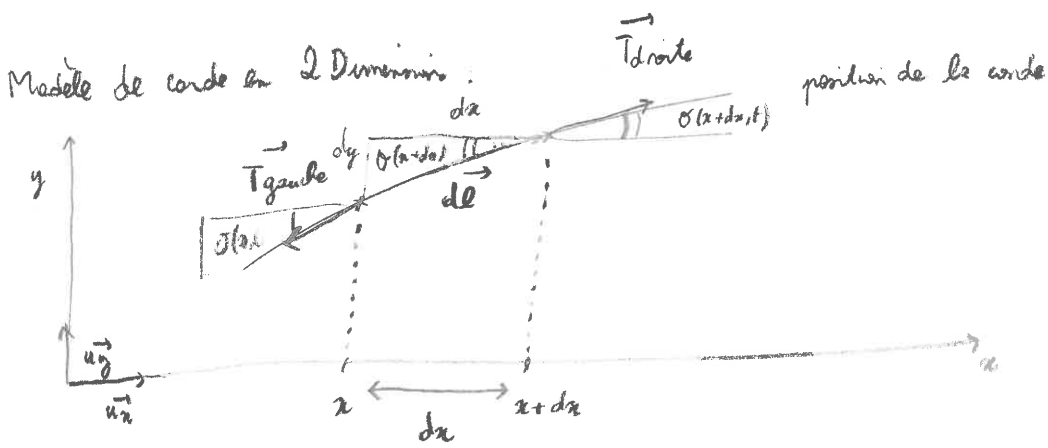 Modèle de corde en 2 Dimensions :
T droite
position de la corde
dx
θ(x+dx,t)
dy
θ(x+dx)
T gauche
dl
y
θ(x,
uy
ux
x
x+dx
x
dx